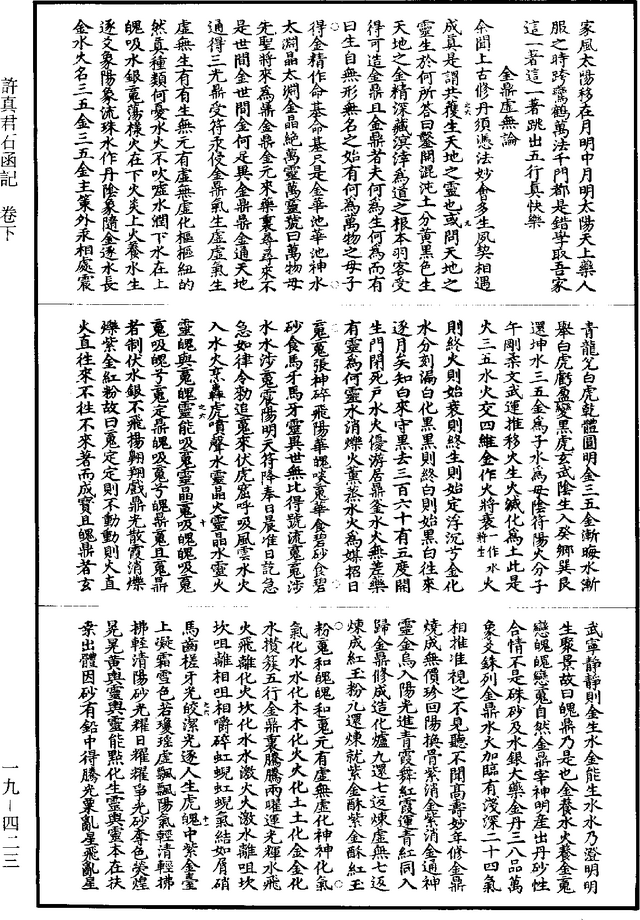 家風太陽移在月明中月明太陽天上藥人
服之時跨鸞鶴萬法千門都是錯學取吾家
這一著這一著跳出五行真快樂
金鼎虛無論
余聞上古修丹須憑法妙會多生夙契相遇
成真是謂共獲生天地之靈也或問天地之
靈生於何所答曰鑿開混沌土分黃黑色生
天地之金精深藏溟涬為道之根本羽客受
得可造金鼎且金鼎者夫何為生何為而有
曰生自無形無名之始有何為萬物之母子
得金精作命基命基只是金華池華池神水
太淵晶太淵金晶絕萬靈萬靈號曰萬物母
先聖將來為鼎金鼎金元來藥裏尋尋來不
是世間金世間金何足異金鼎鼎金通天地
通得三光鼎受符汞侵金鼎氣生虛虛氣生
虛無生有有生無元有虛無虛化樞樞紐的
然真種類何憂水火不吹噓水潤下水在上
魄吸水銀䰟蕩樸火在下火炎上火養水生
逐父象陽象流珠水作丹陰象隨金逐水長
金水火名三五金三五金主策外汞相處震
青龍兌白虎乾體圓明金三五金漸晦水漸
舉白虎虧盈變黑虎玄武陰生入癸鄉巽艮
還坤水三五金為子水為母陰符陽火分子
午剛柔文武運推移火生火緘化為土此是
火三五水火交四維金作火將衰一作將生水火
則終火則始衰則終生則始定浮沉亏金化
水分刻漏白化黑黑則終白則始黑白往來
逐月矣知白來守黑去三百六十有五度開
生門閉死戶水火優游居鼎金水火無差藥
有靈為何靈水消爍火薰蒸水火為媒招日
䰟䰟張神碎飛陽華魄啖䰟華食碧砂食碧
砂食馬牙馬牙靈異世無比得號流䰟䰟涉
水水涉䰟震陽明天符降奉日晨准日訖急
急如律令勑追䰟來伏虎嵓呼吸風雲水火
入水火烹轟虎噴聲水靈晶火靈晶水靈火
靈魄與䰟魄靈能吸䰟靈晶䰟吸魄魄吸䰟
䰟吸魄兮䰟定鼎魄吸䰟兮魄鼎䰟且䰟鼎
者制伏水銀不飛揚翺翔戲鼎光散霞消爍
爍紫金紅粉故曰䰟定定則不動動則火直
火直往來不往不來著而成寶且魄鼎者玄
武寧靜靜則金生水金能生水水乃澄明明
生聚景故曰魄鼎乃是也金養水火養金䰟
戀魄魄戀䰟自然金鼎宰神明產出丹砂性
合情不是硃砂及水銀大藥金丹三八品萬
象爻銖列金鼎水火加臨有淺深二十四氣
相推准視之不見聽不聞高壽妙年修金鼎
燒成無價珍回陽換骨紫消金紫消金通神
靈金烏入陽光進青霞舞紅霞運青紅同入
歸金鼎修成造化爐九還七返煉虛無七返
煉成紅玉粉九還煉就紫金酥紫金酥紅玉
粉䰟和魄魄和䰟元有虛無虛化神神化氣
氣化水水化木木化火火化土土化金金化
水攢簇五行金鼎裏騰騰兩曜運光輝水飛
火飛離化火坎化水水激火火激水離咀坎
坎咀離相咀相嚼碎虹蜺虹蜺氣結如屑硝
馬齒槎牙光皎潔光逐人生虎魄中紫金臺
上凝霜雪色若瓊瑤虛飄飄陽氣輕清輕拂
拂輕清陽砂光耀日耀耀爭光砂奪色熒煌
晃晃黃與靈與靈能點化生靈與靈本在扶
桒出體因砂有鉛中得騰光粟亂星飛亂星
許真君石函記 卷下
一九－四二三